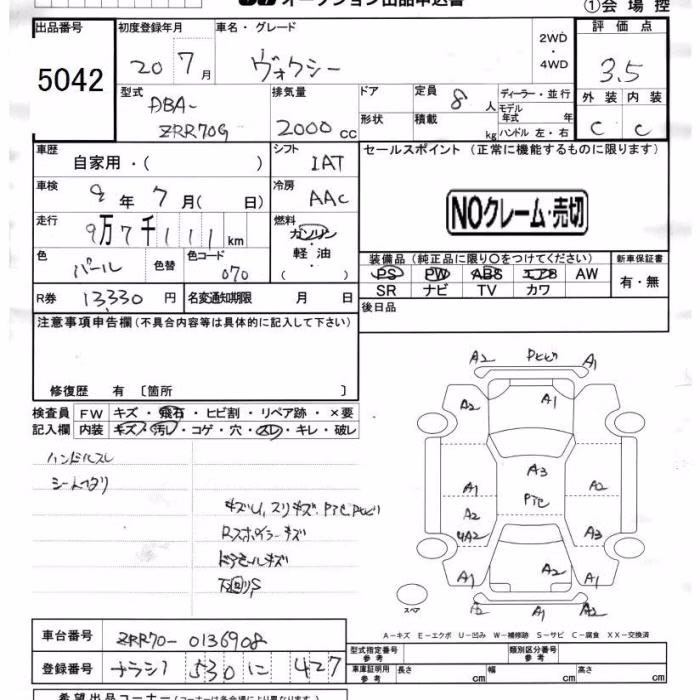 オークション出品申込書
①会場控
出品番号 5042
初度登録年月 20 7月
車名・グレード ヴォクシー
2WD・4WD
評価点 3.5
外装 内装
C C
型式 DBA-
ZRR70G
排気量 2000cc
ドア
形状
定員 8人
積載 kg
ディーラー・並行
モデル年式 年
ハンドル 左・右
車歴 自家用・( )
シフト IAT
セールスポイント (正常に機能するものに限ります)
車検 2年7月(日)
冷房 AAC
NOクレーム・売切
走行 9万7千111km
燃料 ガソリン・軽油
( )
色 パール 色替
色コード 070
装備品 (純正品に限り○をつけてください)
新車保証書
PS PW ABS エアB AW
有・無
SR ナビ TV カワ
R券 13,330円
名変通知期限 月 日
後日品
注意事項申告欄 (不具合内容等は具体的に記入して下さい)
修復歴 有〔箇所 〕
検査員 FW キズ・飛石・ヒビ割・リペア跡・×要
記入欄 内装 キズ・汚レ・コゲ・穴・スレ・キレ・破レ
ハンドルスレ
シートヘタリ
キズU、スリキズ、
Rスポイラーキズ
ドアモールキズ
下廻りS
A2 A1
A2 A1
A3
A1 A2
A2
4A2 A3
A1 A2 A1
A2 A1 A1
スペア
A−キズ E−エクボ U−凹み W−補修跡 S−サビ C−腐食 XX−交換済
車台番号 ZRR70-0136908
型式指定番号 参考
類別区分番号 参考
登録番号 ナラシ1 530 に 427
車庫証明用 参考 長さ cm 幅 cm 高さ cm
希望出品コーナー (コーナーは各会場により異なります)